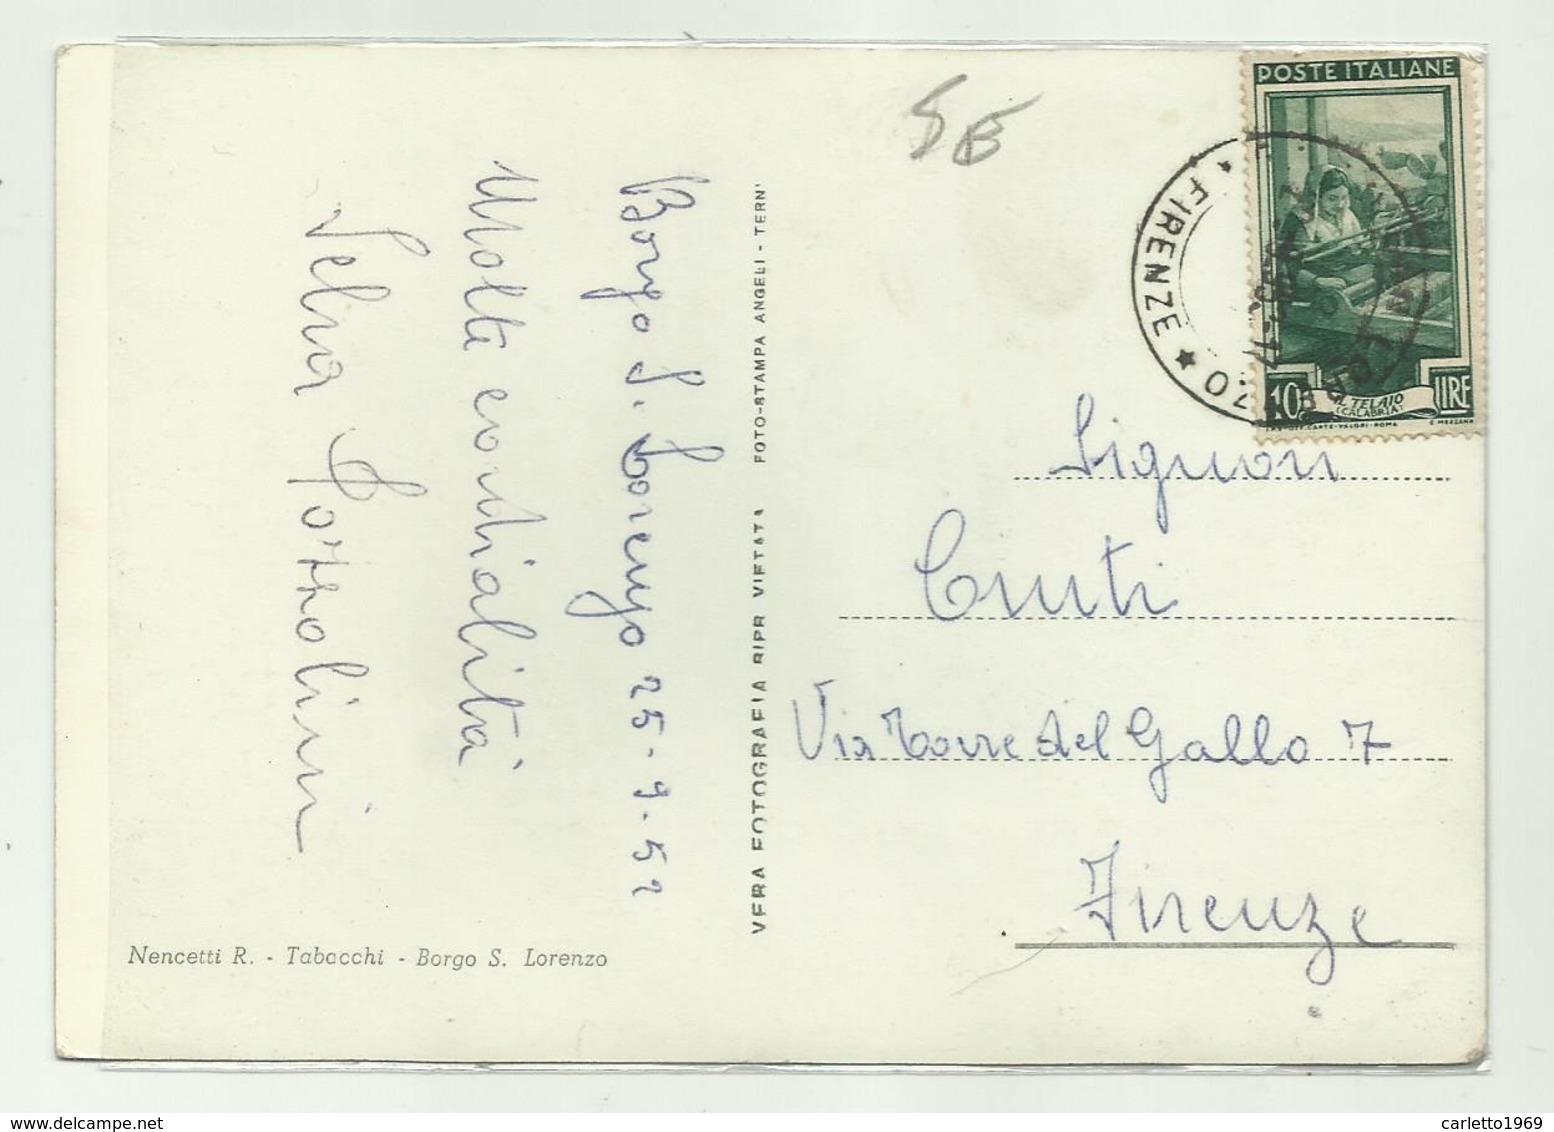 Borgo S. Lorenzo 25-9-52
Molte cordialità
Velia
VERA FOTOGRAFIA RIPR VIETATA FOTO-STAMPA ANGELI - TERNI
Nencetti R. - Tabacchi - Borgo S. Lorenzo
POSTE ITALIANE
10 LIRE
IL TELAIO
(CALABRIA)
I.P.S-OFF.CARTE-VALORI-ROMA E. MEZZANA
★ FIRENZE ★
Signori
Via Torre del Gallo 7
Firenze
carletto1969